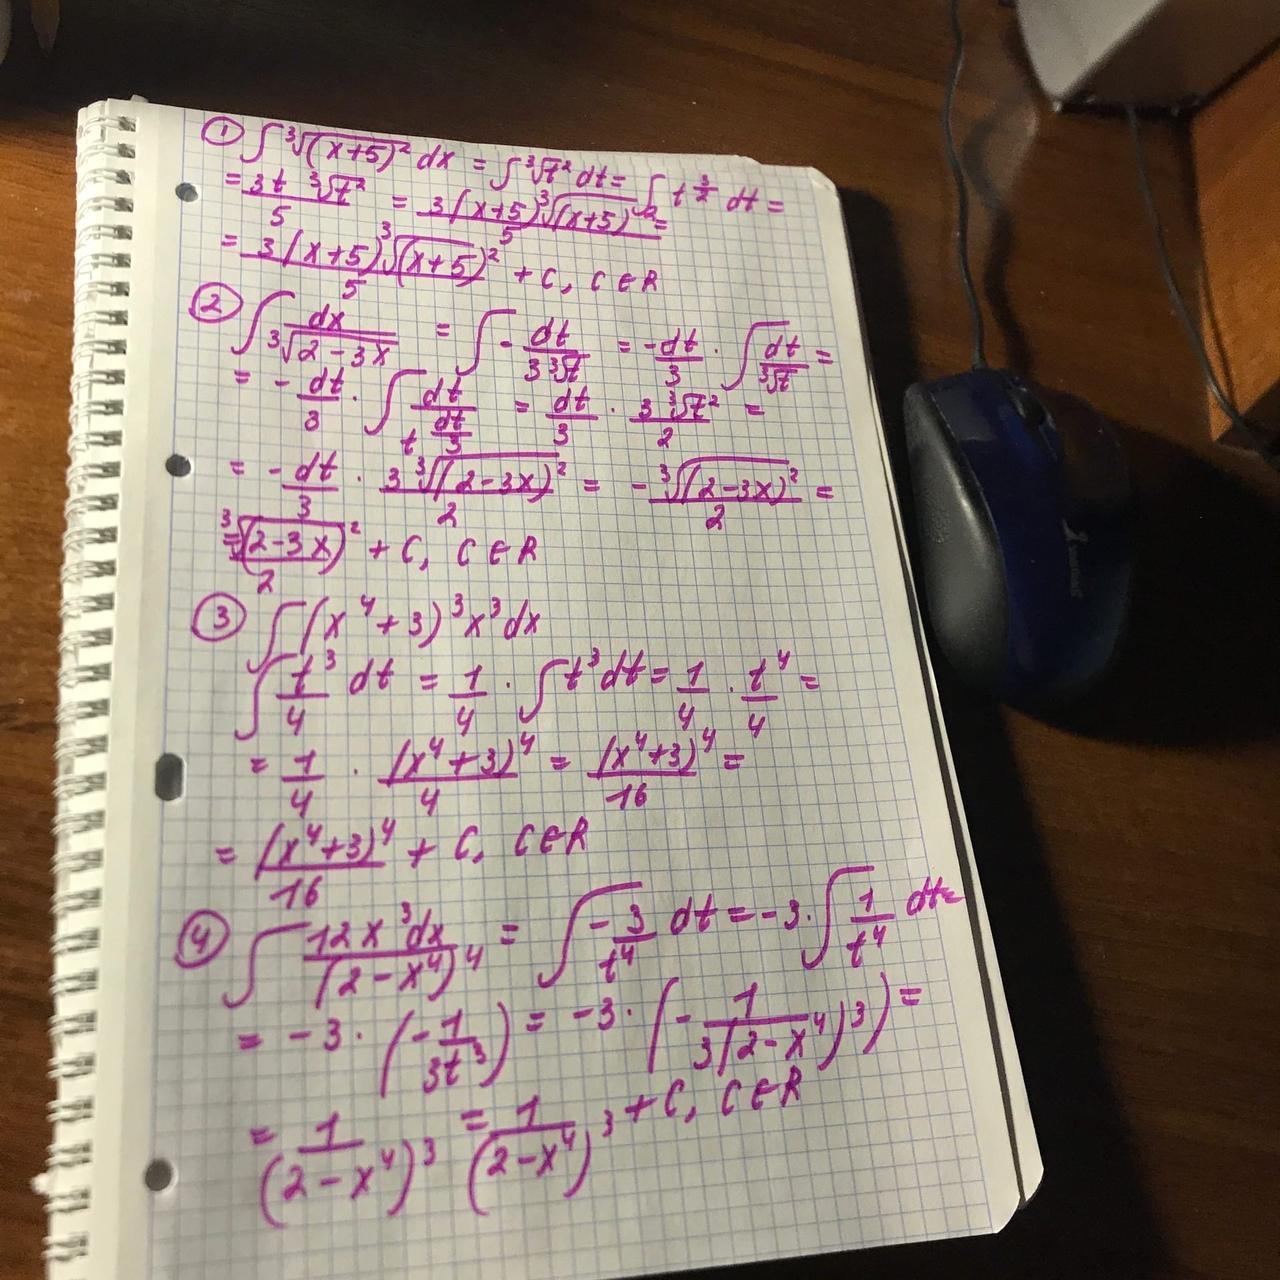 ① ∫ ∛(x+5)² dx = ∫ ∛t² dt = ∫ t^(3/2) dt =
= 3t ∛t² / 5 = 3(x+5) ∛(x+5)² / 5 =
= 3(x+5) ∛(x+5)² / 5 + C, C ∈ R
② ∫ dx / ∛(2-3x) = ∫ - dt / 3∛t = - dt/3 · ∫ dt / ∛t =
= - dt/3 · ∫ dt / t^(dt/3) = dt/3 · 3∛t² / 2 =
= - dt/3 · 3∛(2-3x)² / 2 = - ∛(2-3x)² / 2 =
= ∛(2-3x)² / 2 + C, C ∈ R
③ ∫ (x⁴+3)³ x³ dx
∫ t³/4 dt = 1/4 · ∫ t³ dt = 1/4 · t⁴/4 =
= 1/4 · (x⁴+3)⁴ / 4 = (x⁴+3)⁴ / 16 =
= (x⁴+3)⁴ / 16 + C, C ∈ R
④ ∫ 12x³dx / (2-x⁴)⁴ = ∫ - 3/t⁴ dt = -3 · ∫ 1/t⁴ dt =
= -3 · (- 1/3t³) = -3 · (- 1 / 3(2-x⁴)³) =
= 1 / (2-x⁴)³ = 1 / (2-x⁴)³ + C, C ∈ R